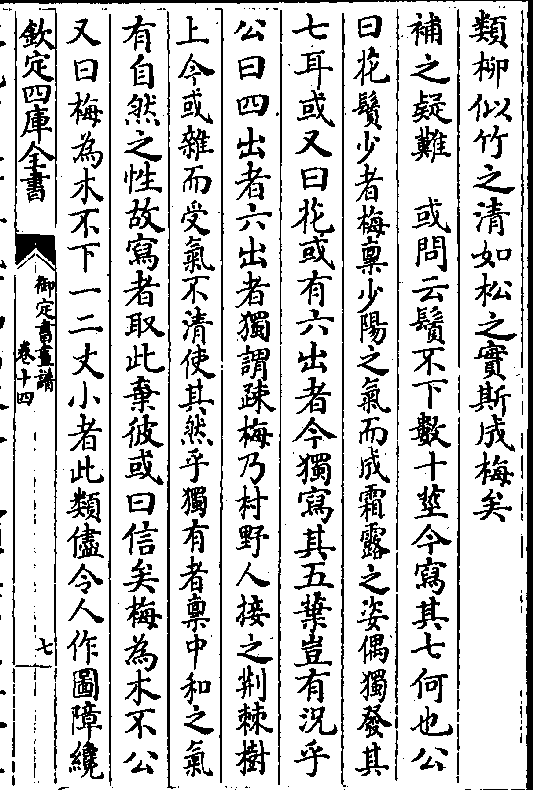 類柳似竹之清如松之實斯成梅矣
補之疑難　或問云鬚不下數十莖今寫其七何也公
曰花鬚少者梅禀少陽之氣而成霜露之姿偶獨發其
七耳或又曰花或有六出者今獨寫其五葉豈有況乎
公曰四出者六出者獨謂疎梅乃村野人接之荆棘樹
上今或雜而受氣不清使其然乎獨有者禀中和之氣
有自然之性故寫者取此棄彼或曰信矣梅為木不公
又曰梅為木不下一二丈小者此類儘令人作圖障纔
欽定四庫全書
御定書畫譜
卷十四
七